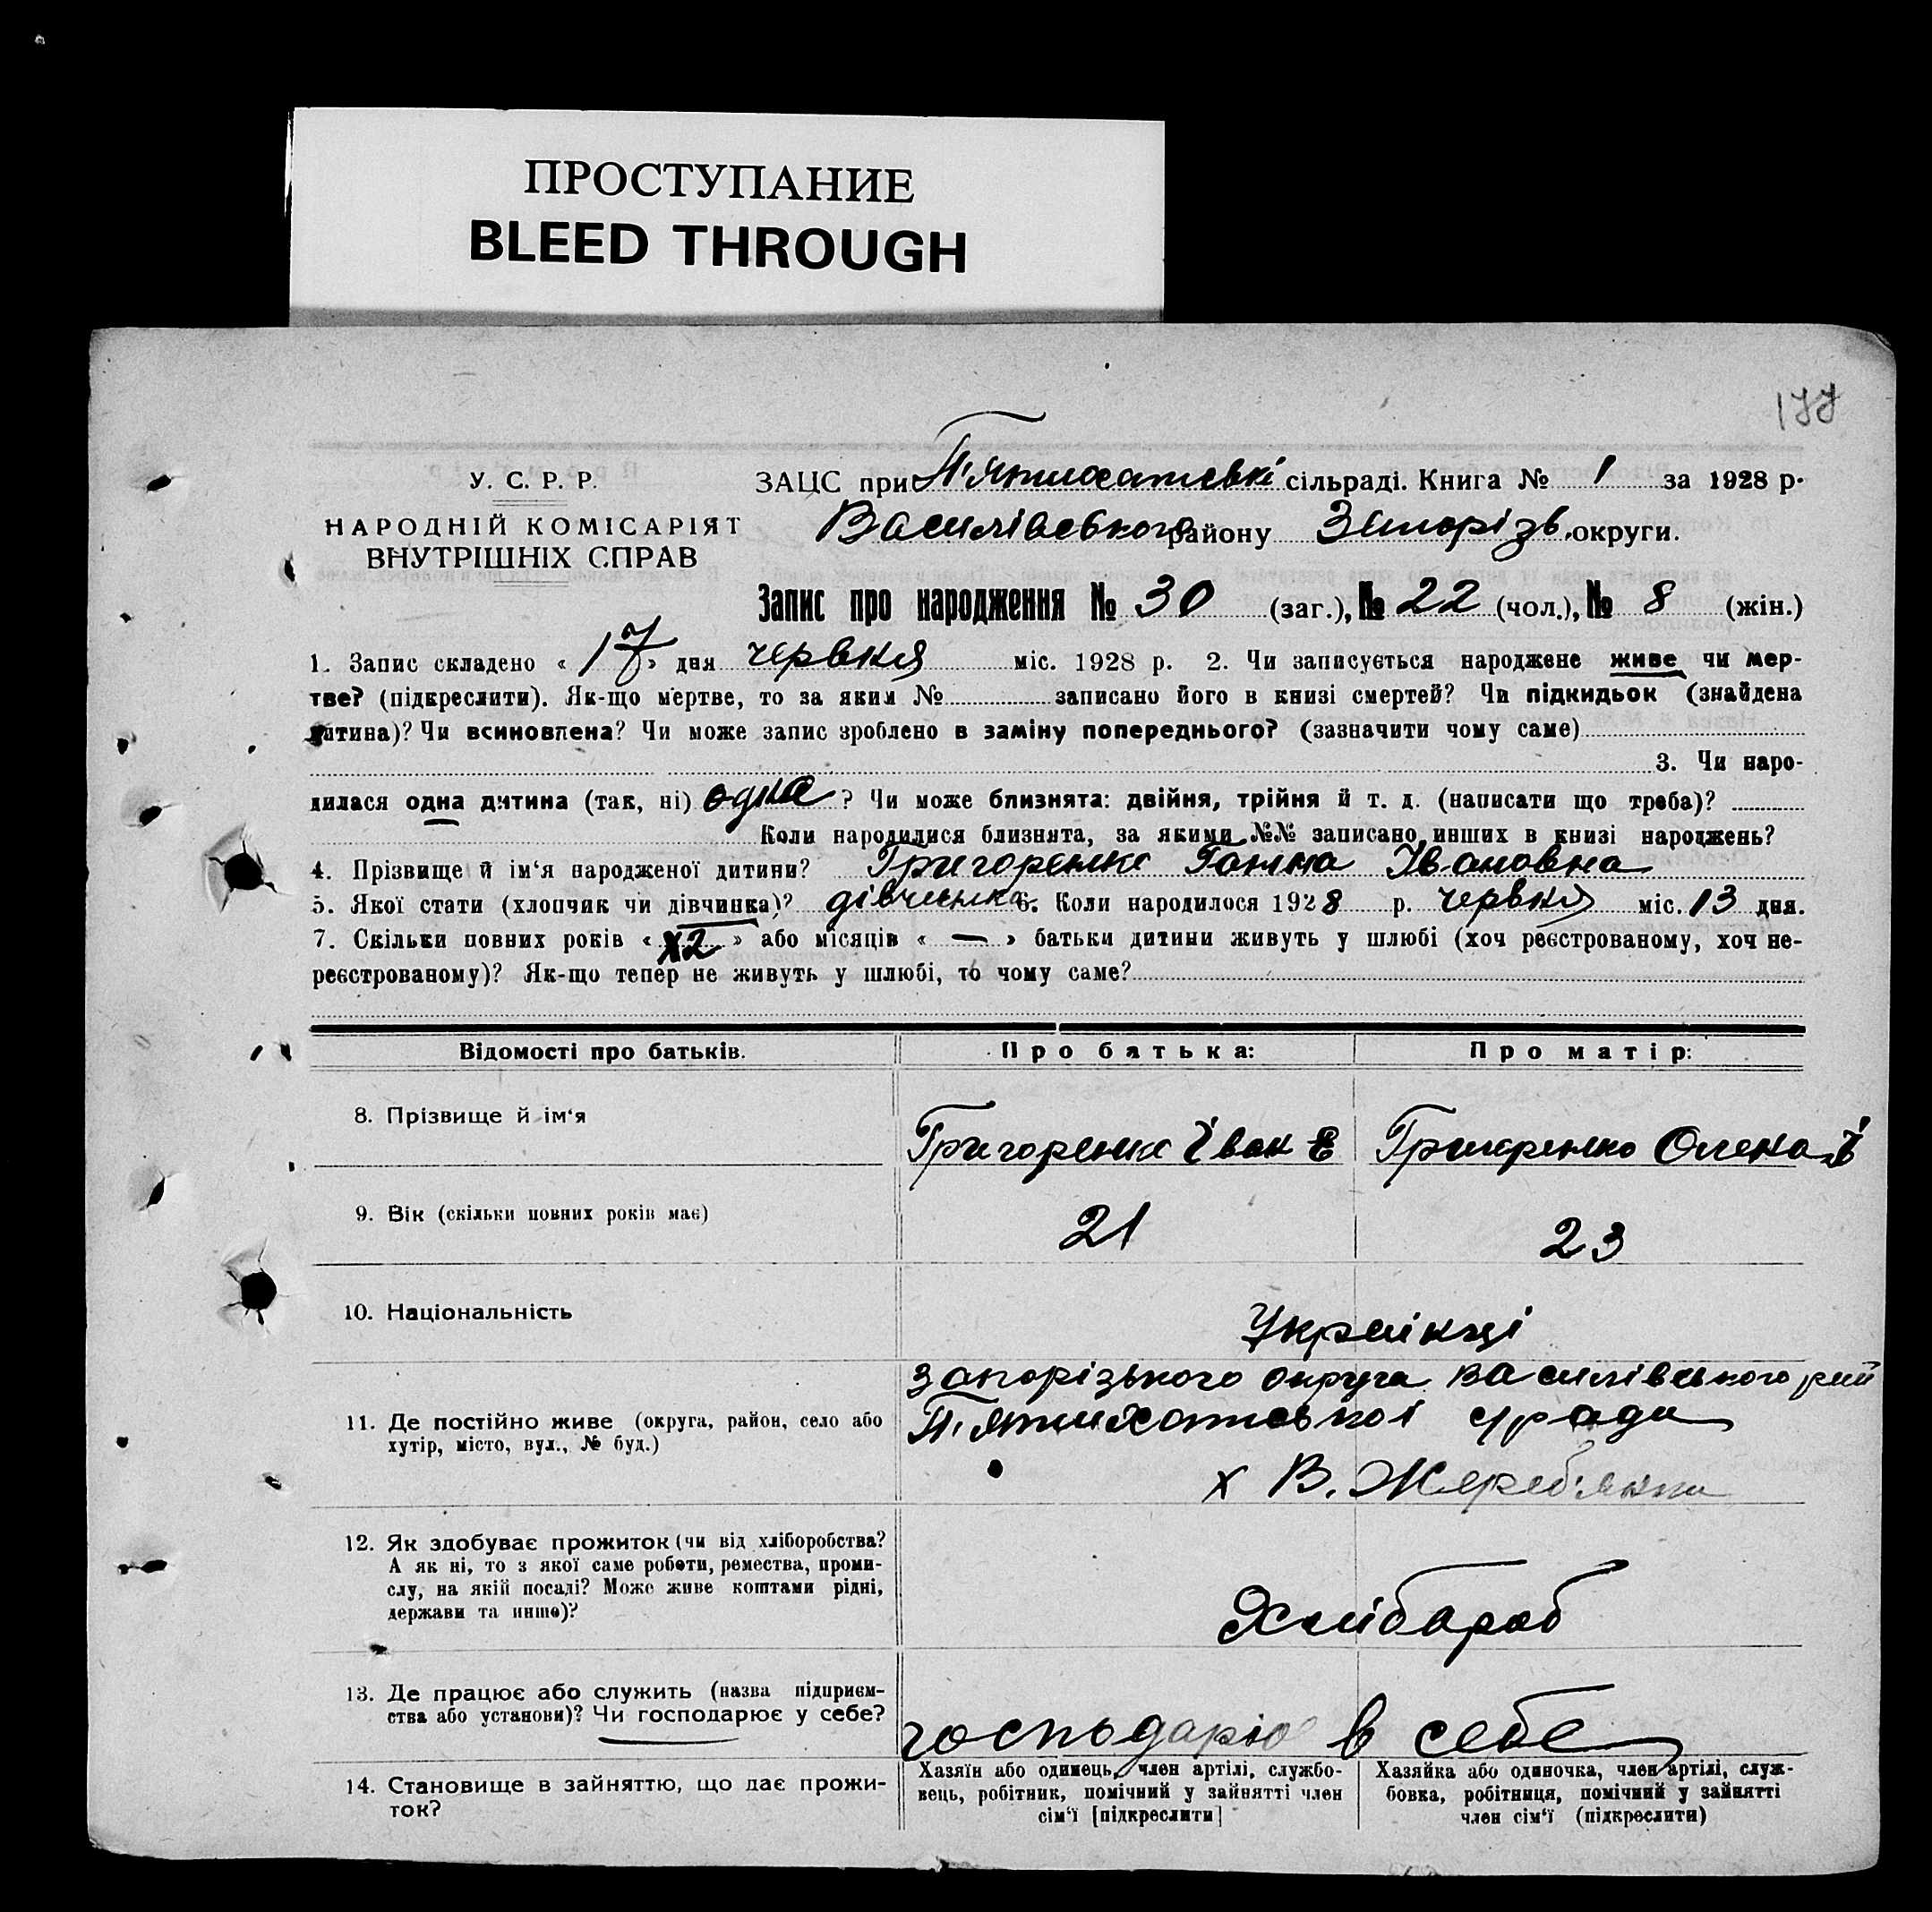 ПРОСТУПАНИЕ
BLEED THROUGH
177
У. С. Р. Р.
НАРОДНІЙ КОМІСАРІЯТ
ВНУТРІШНІХ СПРАВ
ЗАЦС при П'ятихатські сільраді. Книга № 1 за 1928 р.
Василівського району Запорізь. округи.
Запис про народження № 30 (заг.), № 22 (чол.), № 8 (жін.)
1. Запис складено « 17 » дня червня міс. 1928 р. 2. Чи записується народжене живе чи мер-
тве? (підкреслити). Як-що мертве, то за яким № записано його в книзі смертей? Чи підкидьок (знайдена
дитина)? Чи всиновлена? Чи може запис зроблено в заміну попереднього? (зазначити чому саме)
3. Чи наро-
дилася одна дитина (так, ні) одна ? Чи може близнята: двійня, трійня й т. д. (написати що треба)?
Коли народилися близнята, за якими №№ записано инших в книзі народжень?
4. Прізвище й ім‘я народженої дитини? Григоренко Ганна Івановна
5. Якої стати (хлопчик чи дівчинка)? дівчинка 6. Коли народилося 1928 р. червня міс. 13 дня.
7. Скільки повних років « 2 » або місяців « — » батьки дитини живуть у шлюбі (хоч реєстрованому, хоч не-
реєстрованому)? Як-що тепер не живуть у шлюбі, то чому саме?
Відомості про батьків. Про батька: Про матір:
8. Прізвище й ім‘я Григоренко Іван Є Григоренко Олена І
9. Вік (скільки повних років має) 21 23
10. Національність Українці
11. Де постійно живе (округа, район, село або
хутір, місто, вул., № буд.)
Запорізького округа Василівського рай
П'ятихатської с/ради
х В. Жереб'янки
12. Як здобуває прожиток (чи від хліборобства?
А як ні, то з якої саме роботи, ремества, проми-
слу, на якій посаді? Може живе коштами рідні,
держави та инше)?
Хлібароб
13. Де працює або служить (назва підприєм-
ства або установи)? Чи господарює у себе?
господарює в себе
14. Становище в зайняттю, що дає прожи-
ток?
Хазяїн або одинець, член артілі, службо-
вець, робітник, помічний у зайнятті член
сім‘ї [підкреслити]
Хазяйка або одиночка, член артілі, служ-
бовка, робітниця, помічний у зайнятті
член сім‘ї (підкреслити)